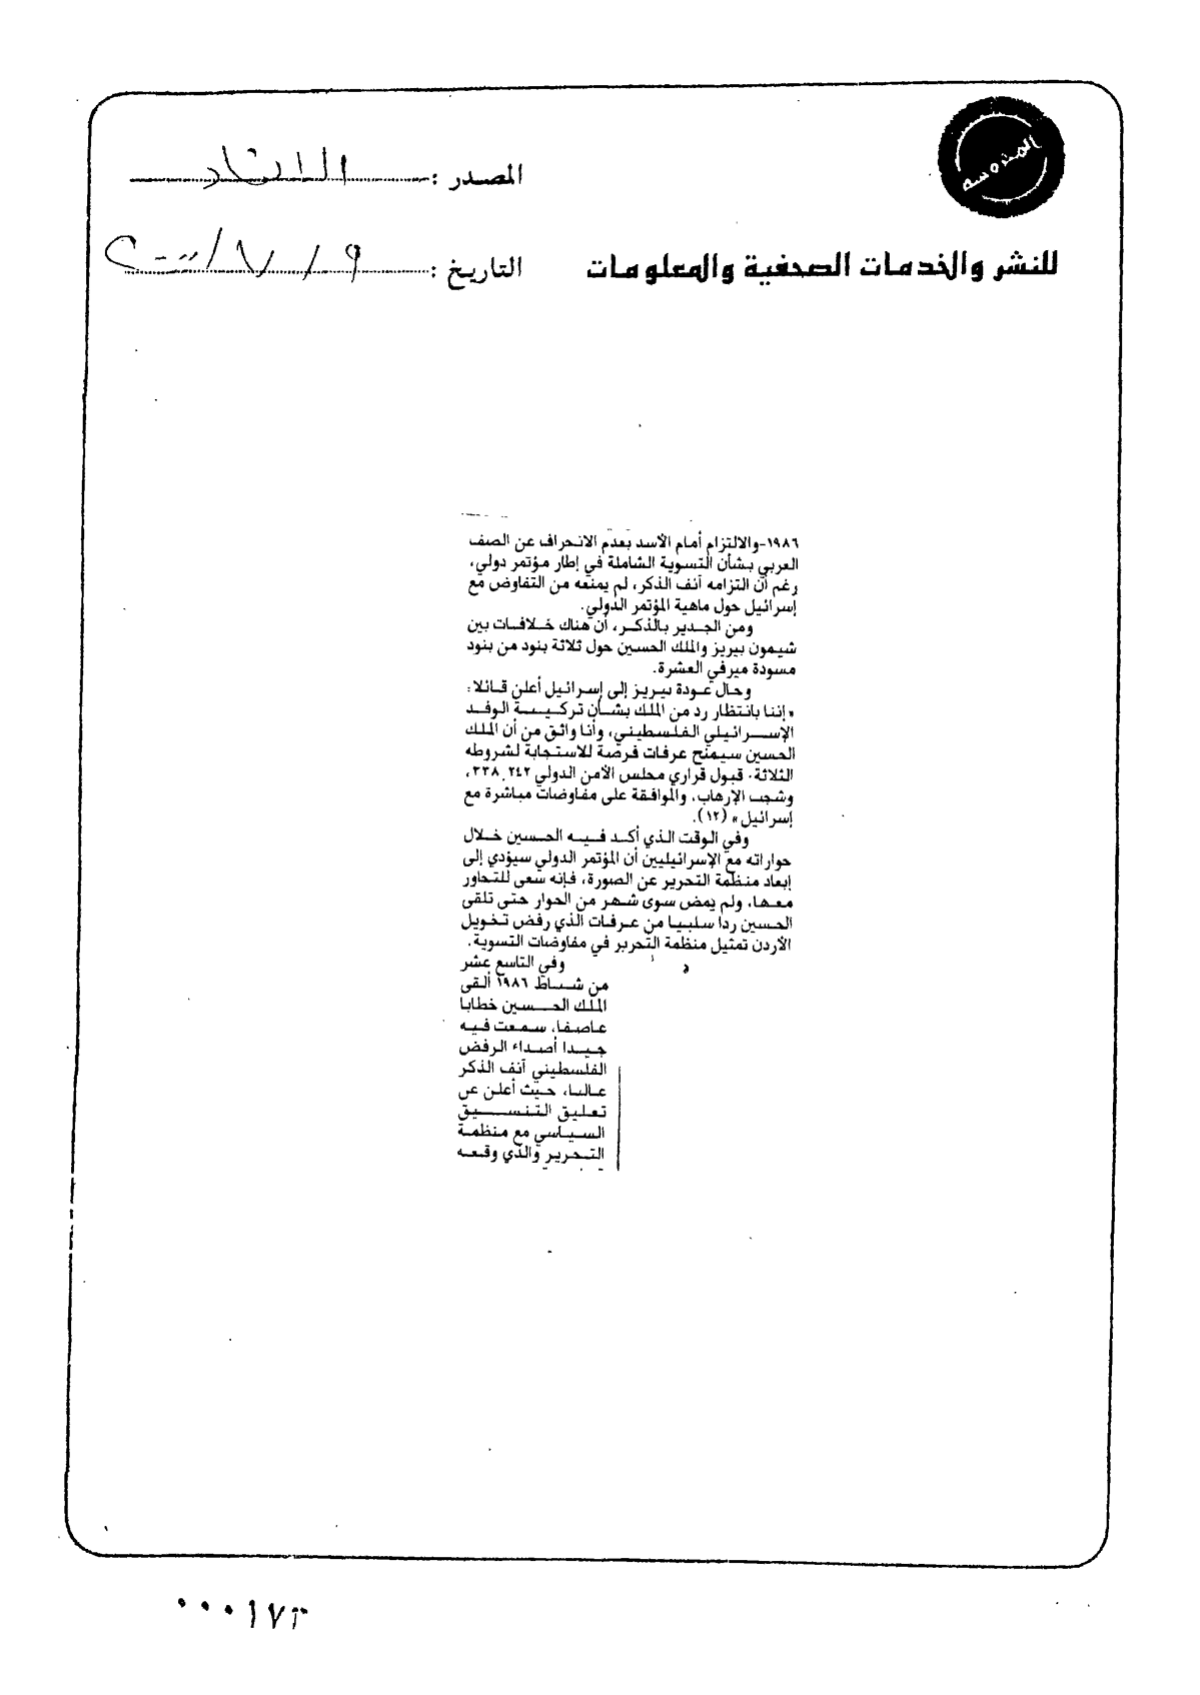 المحروسة
المصدر :
التاريخ : ٩ / ٧ / ٢٠٠٠
للنشر والخدمات الصحفية والمعلومات
١٩٨٦-والالتزام أمام الأسد بعدم الانحراف عن الصف
العربي بشأن التسوية الشاملة في إطار مؤتمر دولي،
رغم أن التزامه آنف الذكر، لم يمنعه من التفاوض مع
إسرائيل حول ماهية المؤتمر الدولي.
ومن الجدير بالذكر، أن هناك خلافات بين
شيمون بيريز والملك الحسين حول ثلاثة بنود من بنود
مسودة ميرفي العشرة.
وحال عودة بيريز إلى إسرائيل أعلن قائلا:
«إننا بانتظار رد من الملك بشأن تركيبة الوفد
الإسرائيلي الفلسطيني، وأنا واثق من أن الملك
الحسين سيمنح عرفات فرصة للاستجابة لشروطه
الثلاثة: قبول قراري مجلس الأمن الدولي ٢٤٢، ٣٣٨،
وشجب الإرهاب، والموافقة على مفاوضات مباشرة مع
إسرائيل» (١٢).
وفي الوقت الذي أكد فيه الحسين خلال
حواراته مع الإسرائيليين أن المؤتمر الدولي سيؤدي إلى
إبعاد منظمة التحرير عن الصورة، فإنه سعى للتحاور
معها، ولم يمض سوى شهر من الحوار حتى تلقى
الحسين ردا سلبيا من عرفات الذي رفض تخويل
الأردن تمثيل منظمة التحرير في مفاوضات التسوية.
وفي التاسع عشر
من شباط ١٩٨٦ ألقى
الملك الحسين خطابا
عاصفا، سمعت فيه
جيدا أصداء الرفض
الفلسطيني آنف الذكر
عاليا، حيث أعلن عن
تعليق التنسيق
السياسي مع منظمة
التحرير والذي وقعه
٠٠٠١٧٣